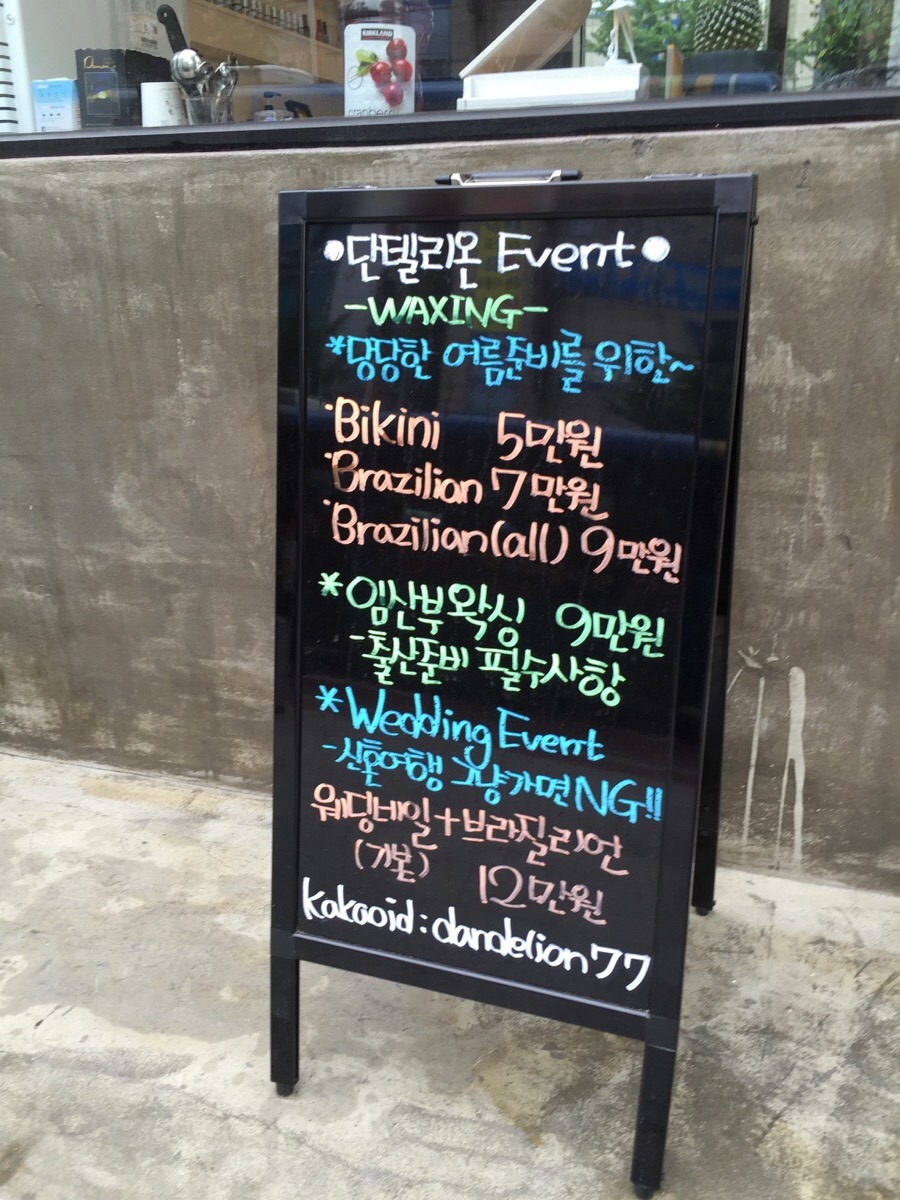 KIRKLAND
cranberr
•단델리온 Event•
-WAXING-
*당당한 여름준비를 위한~
·Bikini 5만원
·Brazilian 7만원
·Brazilian(all) 9만원
*임산부왁싱 9만원
-출산준비 필수사항
*Wedding Event
-신혼여행 그냥가면NG!!
웨딩네일+브라질리언
(기본) 12만원
kakaoid:dandelion77